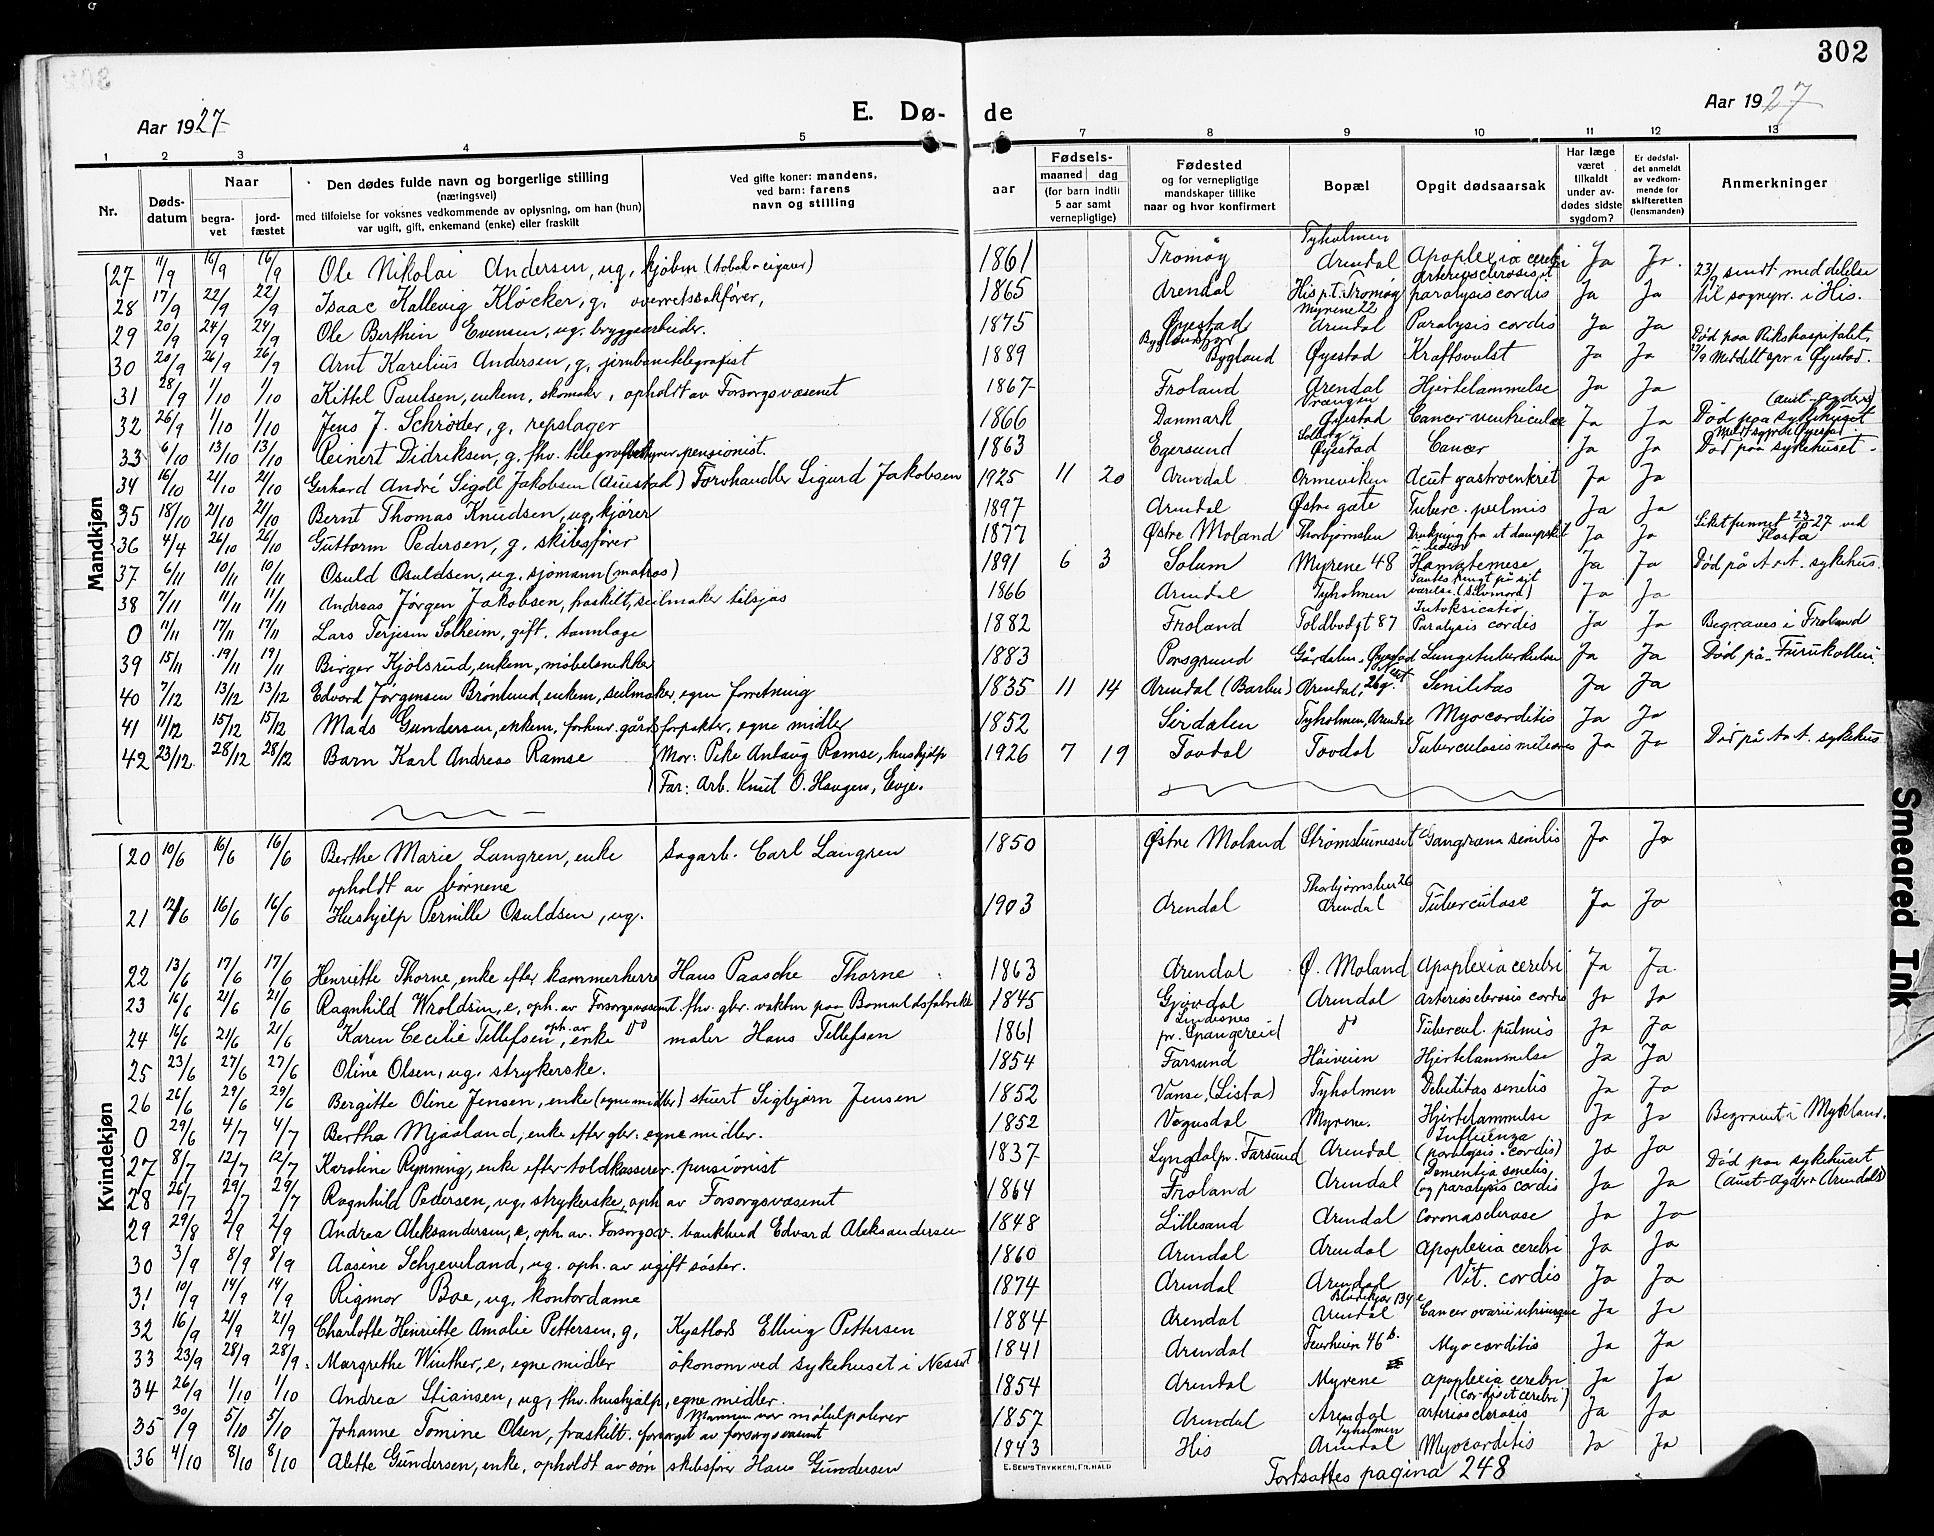 302
Aar 1927
E. Dø- de
Aar 1927
1 2 3 4 5 6 7 8 9 10 11 12 13
Nr.
Døds-
datum
Naar
begra-
vet
jord-
fæstet
Den dødes fulde navn og borgerlige stilling
(næringsvei)
med tilføielse for voksnes vedkommende av oplysning, om han (hun)
var ugift, gift, enkemand (enke) eller fraskilt
Ved gifte koner: mandens,
ved barn: farens
navn og stilling
Fødsels-
aar
maaned dag
(for barn indtil
5 aar samt
vernepligtige)
Fødested
og for vernepligtige
mandskaper tillike
naar og hvor konfirmert
Bopæl
Opgit dødsaarsak
Har læge
været
tilkaldt
under av-
dødes sidste
sygdom?
Er dødsfal-
det anmeldt
av vedkom-
mende for
skifteretten
(lensmanden)
Anmerkninger
Mandkjøn
27 11/9 16/9 16/9 Ole Nikolai Andersen, ug, kjøbm (tobak-cigarer) 1861 Tromøy Tyholmen Arendal Apoplexia cerebri Ja Ja
28 17/9 22/9 22/9 Isaac Kallevig Kløcker, g, overretssakfører, 1865 Arendal His p.t. Tromøy Arteriosclerosis et paralysis cordis Ja Ja 23/9 sendt meddelelse til sognepr. i His.
29 20/9 24/9 24/9 Ole Berthin Evensen, ug. bryggearbeider. 1875 Øyestad Myrene 22 Arendal Paralysis cordis Ja Ja
30 20/9 26/9 26/9 Arnt Karelius Andersen, g, jernbanetelegrafist 1889 Bygland Øyestad Kraftsvulst Ja Ja Død paa Rikshospitalet, 27/9 Meddelt spr i Øyestad.
31 28/9 1/10 1/10 Kittel Paulsen, enkem, skomaker, opholdt av Forsorgsvæsenet 1867 Froland Arendal Hjertelammelse Ja Ja
32 26/9 1/10 1/10 Jens J. Schrøder, g, repslager 1866 Danmark Vrængen Øyestad Cancer ventriculae Ja Ja Død paa sykehuset (Aust-Agders)
33 6/10 13/10 13/10 Reinert Didriksen, g, fhv. telegrafbestyrer, pensionist. 1863 Egersund Solborg Øyestad Cancer Ja Ja Død paa sykehuset
34 16/10 21/10 21/10 Gerhard André Sigoll Jakobsen (Auestad) Forvhandler Sigurd Jakobsen 1925 11 20 Arendal Ormeviken Acut gastroenterit Ja Ja
35 18/10 21/10 21/10 Bernt Thomas Knudsen, ug, kjører 1897 Arendal Østre gate Tuberc. pulmis Ja Ja
36 4/4 26/10 26/10 Guttorm Pedersen, g, skibsfører 1877 Østre Moland Thorbjørnsbu Drukning fra et dampskib Ja Ja Liket funnet 23/10 27 ved Hastæ
37 6/11 10/11 10/11 Osuld Osuldsen, ug, sjømann (matros) 1891 6 3 Solum Myrene 48 Hamatemese Ja Ja Død på A.A. sykehus.
38 7/11 11/11 11/11 Andreas Jørgen Jakobsen, fraskilt, seilmaker tilsjøs 1866 Arendal Tyholmen Fantes hengt på sit værelse. (Selvmord) Ja Ja
0 11/11 17/11 17/11 Lars Terjesen Solheim, gift, tannlæge 1882 Froland Toldbodgt 87 Intoksicatio, Paralysis cordis Ja Ja Begraves i Froland
39 15/11 19/11 19/11 Birger Kjølsrud, enkem, møbelsnikker 1883 Porsgrund Gårdalen, Øyestad Lungetuberkulose Ja Ja Død på Furukollen.
40 7/12 13/12 13/12 Edvard Jørgensen Brønlund, enkem, seilmaker, egen forretning 1835 11 14 Arendal (Barbu) Arendal, Senilitas Ja Ja
41 11/12 15/12 15/12 Mads Gundersen, enkem, forhenv. gårdsforpakter, egne midler 1852 Sirdalen Tyholmen, Arendal Myocarditis Ja Ja
42 23/12 28/12 28/12 Barn Karl Andreas Ramse Mor: Pike Anlaug Ramse, hushjelp 1926 7 19 Tovdal Tovdal Tuberculosis Ja Ja Død på A.A. sykehus
Far: Arb. Knut O. Haugen, Evje.
Kvindekjøn
20 10/6 16/6 16/6 Berthe Marie Langren, enke Sagarb. Carl Langren 1850 Østre Moland Strømsbunesset Gangræna senilis Ja Ja
opholdt av børnene
21 12/6 16/6 16/6 Hushjelp Pernille Osuldsen, ug. 1903 Arendal Thorbjørnsbu 26 Arendal Tuberculose Ja Ja
22 13/6 17/6 17/6 Henriette Thorne, enke efter kammerherre Hans Paasche Thorne 1863 Arendal Ø. Moland Apoplexia cerebri Ja Ja
23 16/6 21/6 21/6 Ragnhild Wroldsen, e, oph. av Forsorgsvæsenet. fhv. gbr. vakten paa Bomuldsfabrikk 1845 Gjøvdal Arendal Arteriosclerosis cordis Ja Ja
24 16/6 21/6 21/6 Karen Cecilie Tellefsen, enke oph. av do maler Hans Tellefsen 1861 Lindesnes pr. Spangereid do Tubercul. pulmis Ja Ja
25 23/6 27/6 27/6 Oline Olsen, ug. strykerske. 1854 Farsund Høiveien Hjertelammelse Ja Ja
26 26/6 29/6 29/6 Bergitte Oline Jensen, enke (egne midler) stuert Sigbjørn Jensen 1852 Vanse, (Lista) Tyholmen Debilitas senilis Ja Ja
0 29/6 4/7 4/7 Bertha Mjaaland, enke efter gbr: egne midler. 1852 Vegusdal Myrene. Hjertelammelse Ja Ja Begravet i Mykland.
27 8/7 12/7 12/7 Karoline Rynning, enke efter toldkasserer. pensionist 1837 Lyngdal pr. Farsund Arendal Influenza (paralysis cordis) Ja Ja
28 26/7 29/7 29/7 Ragnhild Pedersen, ug, strykerske, oph av Forsorgsvæsenet 1864 Froland Arendal Dementia senilis, og paralysis cordis Ja Ja Død paa sykehuset (Aust-Agder Arendal)
29 29/8 2/9 2/9 Andrea Aleksandersen, e, oph. av. Forsorgsv. bankbud Edvard Aleksandersen 1848 Lillesand Arendal Coronasclerose Ja Ja
30 3/9 8/9 8/9 Aasine Schjeveland, ug. oph. av ugift søster. 1860 Arendal Arendal Apoplexia cerebri Ja Ja
31 10/9 14/9 14/9 Rigmor Boe, ug, kontordame 1874 Arendal Arendal Vit. cordis Ja Ja
32 16/9 21/9 21/9 Charlotte Henriette Amalie Pettersen, g, Kystlods Elling Pettersen 1884 Arendal Arendal Cancer ovarii utriusque Ja Ja
33 23/9 28/9 28/9 Margrethe Winther, e, egne midler økonom ved sykehuset i Nesset 1841 Arendal 46 b. Myocarditis Ja Ja
34 26/9 1/10 1/10 Andrea Stiansen, ug, fhv. hushjælp, egne midler. 1854 Arendal Myrene Apoplexia cerebri Ja Ja
35 30/9 5/10 5/10 Johanne Tomine Olsen, fraskilt. forsørget av forsorgsvæsenet Mannen var møbelpolerer 1857 Arendal Arendal arteriosclerosis (cordis et cerebri) Ja Ja
36 4/10 8/10 8/10 Alette Gundersen, enke, opholdt av søn skibsfører Hans Gundersen 1843 His Tyholmen Arendal Myocarditis Ja Ja
E. SEM'S TRYKKERI, FR.HALD
Fortsattes pagina 248
Smeared Ink